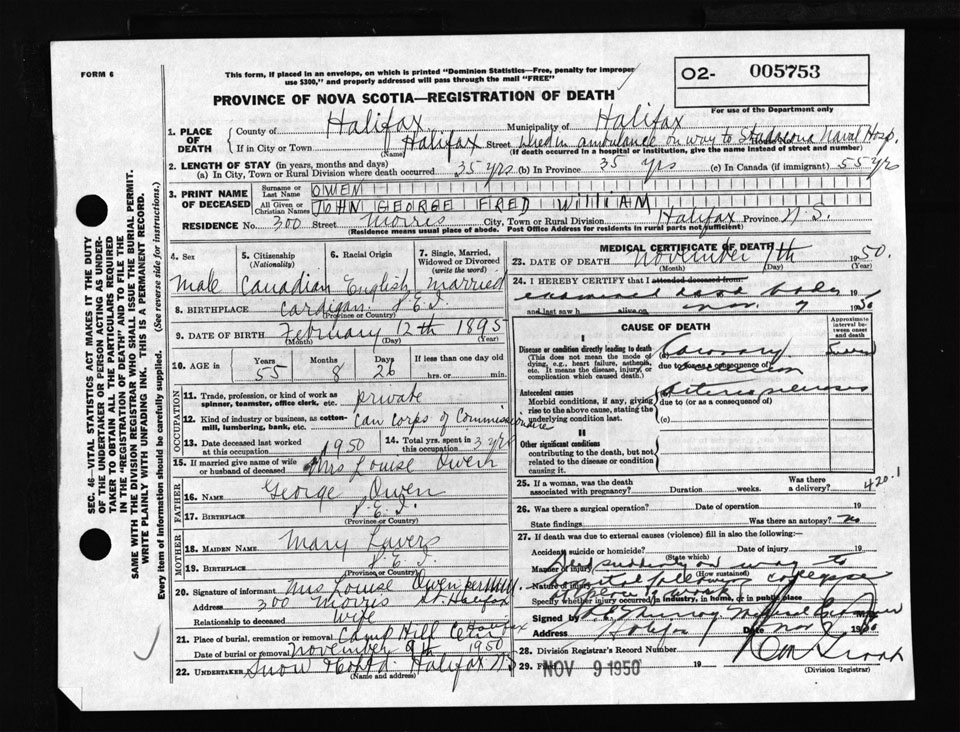 FORM 6
This form, if placed in an envelope, on which is printed "Dominion Statistics—Free, penalty for improper
use $300," and properly addressed will pass through the mail "FREE"
O2- 005753
For use of the Department only
PROVINCE OF NOVA SCOTIA—REGISTRATION OF DEATH
SEC. 46—VITAL STATISTICS ACT MAKES IT THE DUTY
OF THE UNDERTAKER OR PERSON ACTING AS UNDER-
TAKER TO OBTAIN ALL THE PARTICULARS REQUIRED
IN THE "REGISTRATION OF DEATH" AND TO FILE THE
SAME WITH THE DIVISION REGISTRAR WHO SHALL ISSUE THE BURIAL PERMIT.
WRITE PLAINLY WITH UNFADING INK. THIS IS A PERMANENT RECORD.
Every item of information should be carefully supplied. (See reverse side for instructions.)
1. PLACE OF DEATH
County of Halifax Municipality of Halifax
If in City or Town Halifax Street Died in ambulance on way to Stadacona Naval Hosp.
(Name) (If death occurred in a hospital or institution, give the name instead of street and number)
2. LENGTH OF STAY (in years, months and days)
(a) In City, Town or Rural Division where death occurred 35 yrs (b) In Province 35 yrs (c) In Canada (if immigrant) 55 yrs
3. PRINT NAME OF DECEASED
Surname or Last Name OWEN
All Given or Christian Names JOHN GEORGE FRED WILLIAM
RESIDENCE No. 300 Street Morris City, Town or Rural Division Halifax Province N.S.
(Residence means usual place of abode. Post Office Address for residents in rural parts not sufficient)
4. Sex 5. Citizenship (Nationality) 6. Racial Origin 7. Single, Married, Widowed or Divorced (write the word)
Male Canadian English Married
8. BIRTHPLACE Cardigan P.E.I.
(Province or Country)
9. DATE OF BIRTH February 12th 1895
(Month) (Day) (Year)
10. AGE in Years Months Days If less than one day old
55 8 26 hrs. or min.
OCCUPATION
11. Trade, profession, or kind of work as
spinner, teamster, office clerk, etc. private
12. Kind of industry or business, as cotten-
mill, lumbering, bank, etc. Can Corps of Commissionaire
13. Date deceased last worked
at this occupation 1950
14. Total yrs. spent in
this occupation 3 yrs
15. If married give name of wife
or husband of deceased Mrs Louise Owen
FATHER
16. NAME George Owen
17. BIRTHPLACE P.E.I.
(Province or Country)
MOTHER
18. MAIDEN NAME Mary Lavers
19. BIRTHPLACE P.E.I.
(Province or Country)
20. Signature of informant Mrs Louise Owen
Address 300 Morris St. Halifax
Relationship to deceased wife
21. Place of burial, cremation or removal Camp Hill Cem Halifax
Date of burial or removal November 9th 1950
22. UNDERTAKER Snow & Co Ltd. Halifax NS
(Name and address)
MEDICAL CERTIFICATE OF DEATH
23. DATE OF DEATH November 7th 1950.
(Month) (Day) (Year)
24. I HEREBY CERTIFY that I attended deceased from:
examined body 19
and last saw h alive on Nov. 7 1950
CAUSE OF DEATH
Approximate interval between onset and death
I
Disease or condition directly leading to death
(This does not mean the mode of
dying, e.g., heart failure, asthenia,
etc. It means the disease, injury, or
complication which caused death.)
(a) Coronary
due to (or as a consequence of)
Antecedent causes
Morbid conditions, if any, giving
rise to the above cause, stating the
underlying condition last.
(b)
due to (or as a consequence of)
(c)
II
Other significant conditions
contributing to the death, but not
related to the disease or condition
causing it.
25. If a woman, was the death
associated with pregnancy? Duration weeks. Was there
a delivery? 420.1
26. Was there a surgical operation? Date of operation 19
State findings Was there an autopsy? No
27. If death was due to external causes (violence) fill in also the following:—
Accident, suicide or homicide? Date of injury 19
(State which)
Manner of injury Died suddenly on way to
(How sustained)
Nature of injury hospital following collapse
Specify whether injury occurred in industry, in home, or in public place
at place of work
Signed by
Address Halifax Date Nov 1950
28. Division Registrar's Record Number
29. Filed NOV 9 1950 19
(Division Registrar)